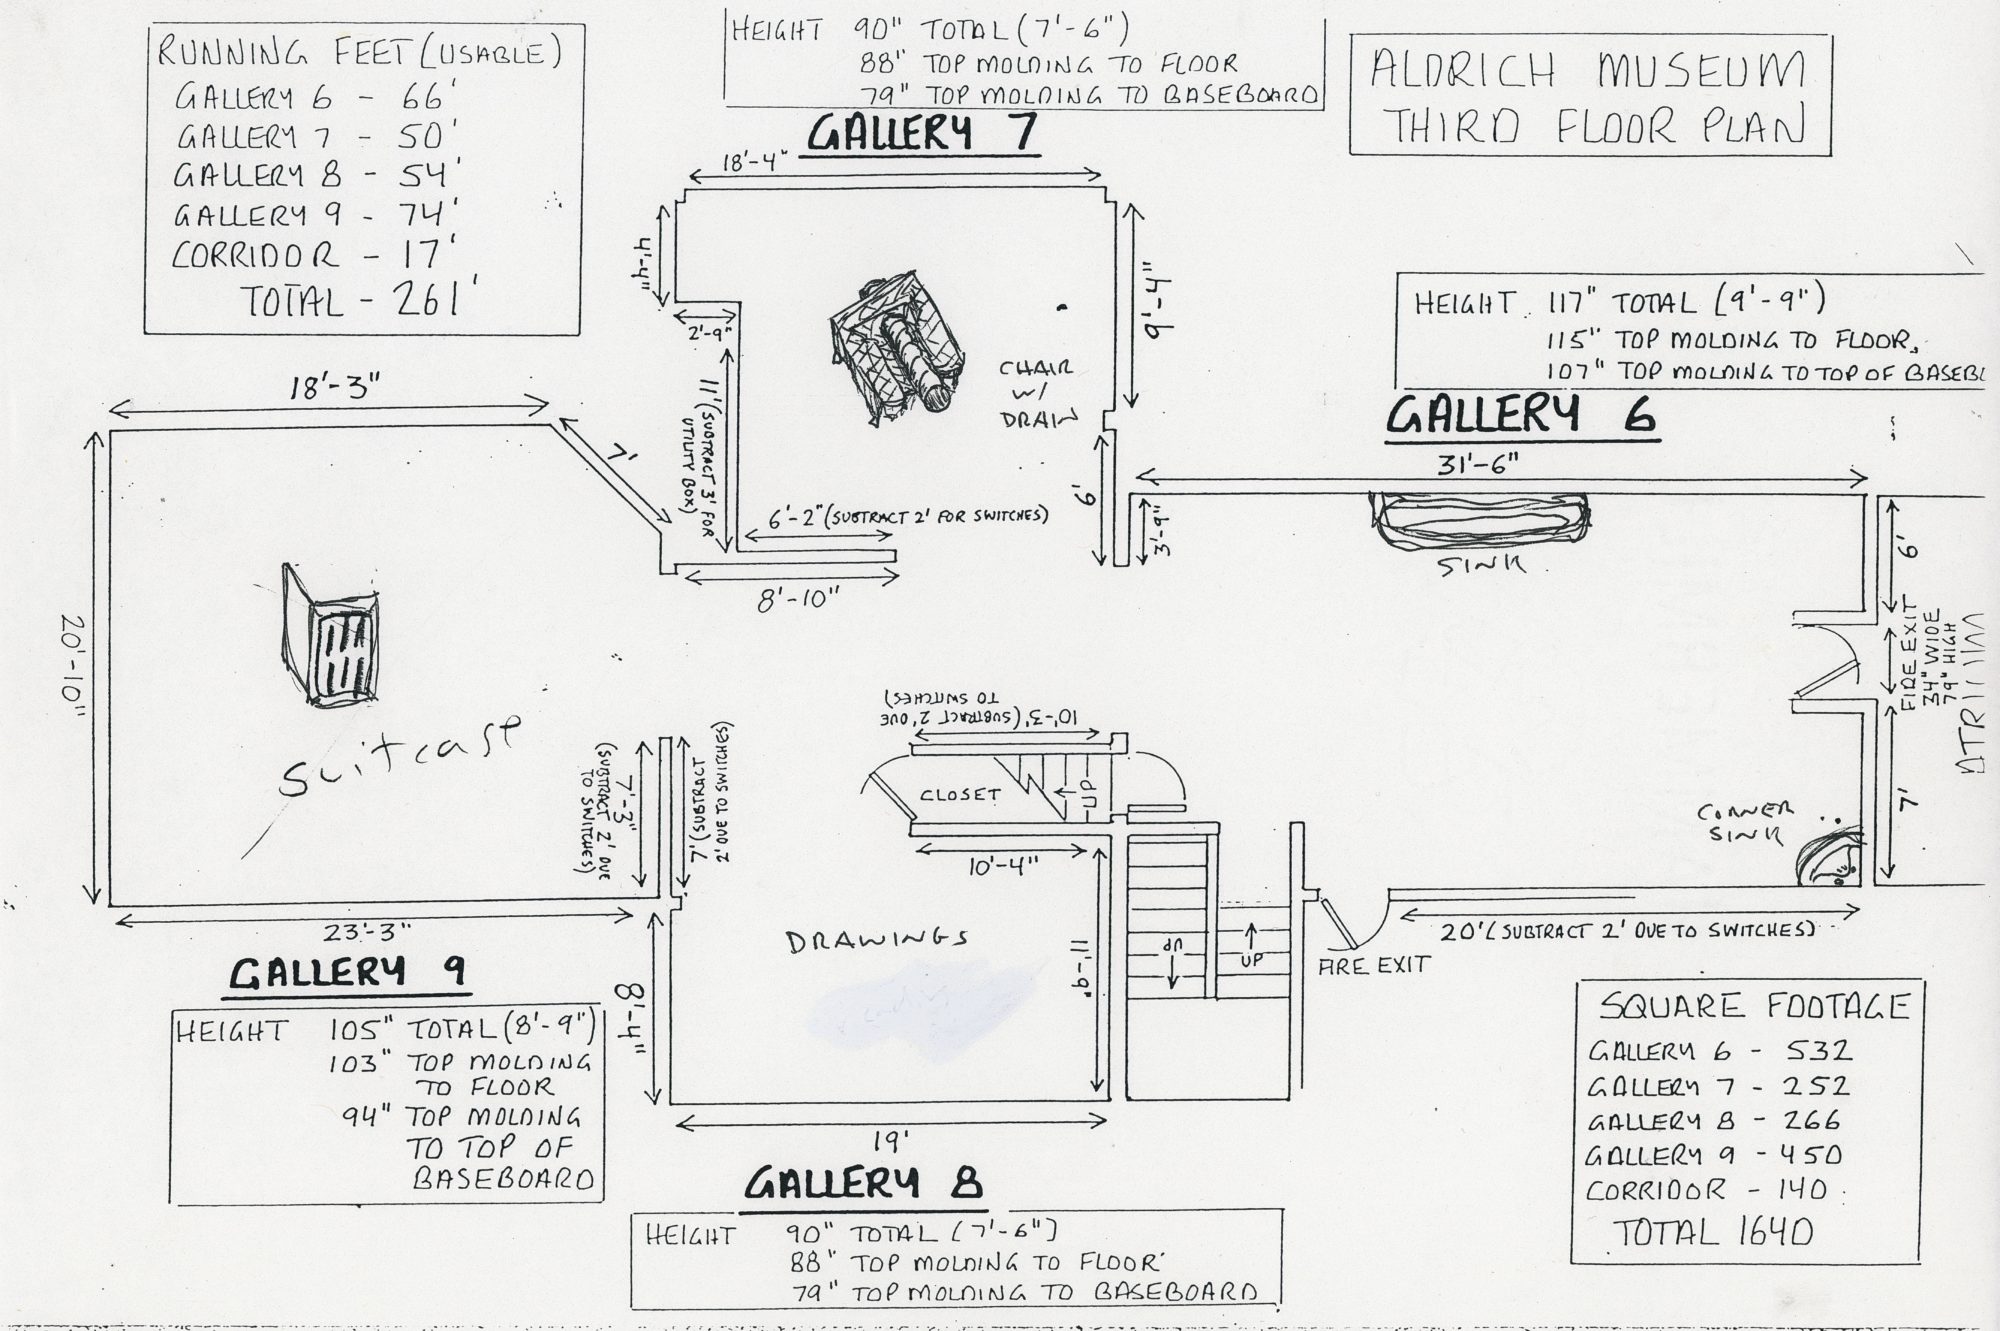 RUNNING FEET (USABLE)
GALLERY 6 - 66'
GALLERY 7 - 50'
GALLERY 8 - 54'
GALLERY 9 - 74'
CORRIDOR - 17'
TOTAL - 261'
HEIGHT 90" TOTAL (7'-6")
88" TOP MOLDING TO FLOOR
79" TOP MOLDING TO BASEBOARD
GALLERY 7
ALDRICH MUSEUM
THIRD FLOOR PLAN
18'-4"
4'-4"
2'-9"
11' (SUBTRACT 3' FOR
UTILITY BOX)
9'-4"
CHAIR
W/
DRAIN
6'
6'-2" (SUBTRACT 2' FOR SWITCHES)
8'-10"
HEIGHT 117" TOTAL (9'-9")
115" TOP MOLDING TO FLOOR,
107" TOP MOLDING TO TOP OF BASEBL
GALLERY 6
31'-6"
3'-9"
SINK
6'
FIRE EXIT
34" WIDE
79" HIGH
7'
CORNER
SINK
20' (SUBTRACT 2' DUE TO SWITCHES)
FIRE EXIT
18'-3"
7'
20'-10"
suitcase
7'-3"
(SUBTRACT 2' DUE
TO SWITCHES)
7' (SUBTRACT
2' DUE TO SWITCHES)
23'-3"
GALLERY 9
HEIGHT 105" TOTAL (8'-9")
103" TOP MOLDING
TO FLOOR
94" TOP MOLDING
TO TOP OF
BASEBOARD
10'-3" (SUBTRACT 2' DUE
TO SWITCHES)
CLOSET
UP
10'-4"
DRAWINGS
8'-4"
11'-9"
UP
UP
19'
GALLERY 8
HEIGHT 90" TOTAL (7'-6")
88" TOP MOLDING TO FLOOR
79" TOP MOLDING TO BASEBOARD
SQUARE FOOTAGE
GALLERY 6 - 532
GALLERY 7 - 252
GALLERY 8 - 266
GALLERY 9 - 450
CORRIDOR - 140
TOTAL 1640